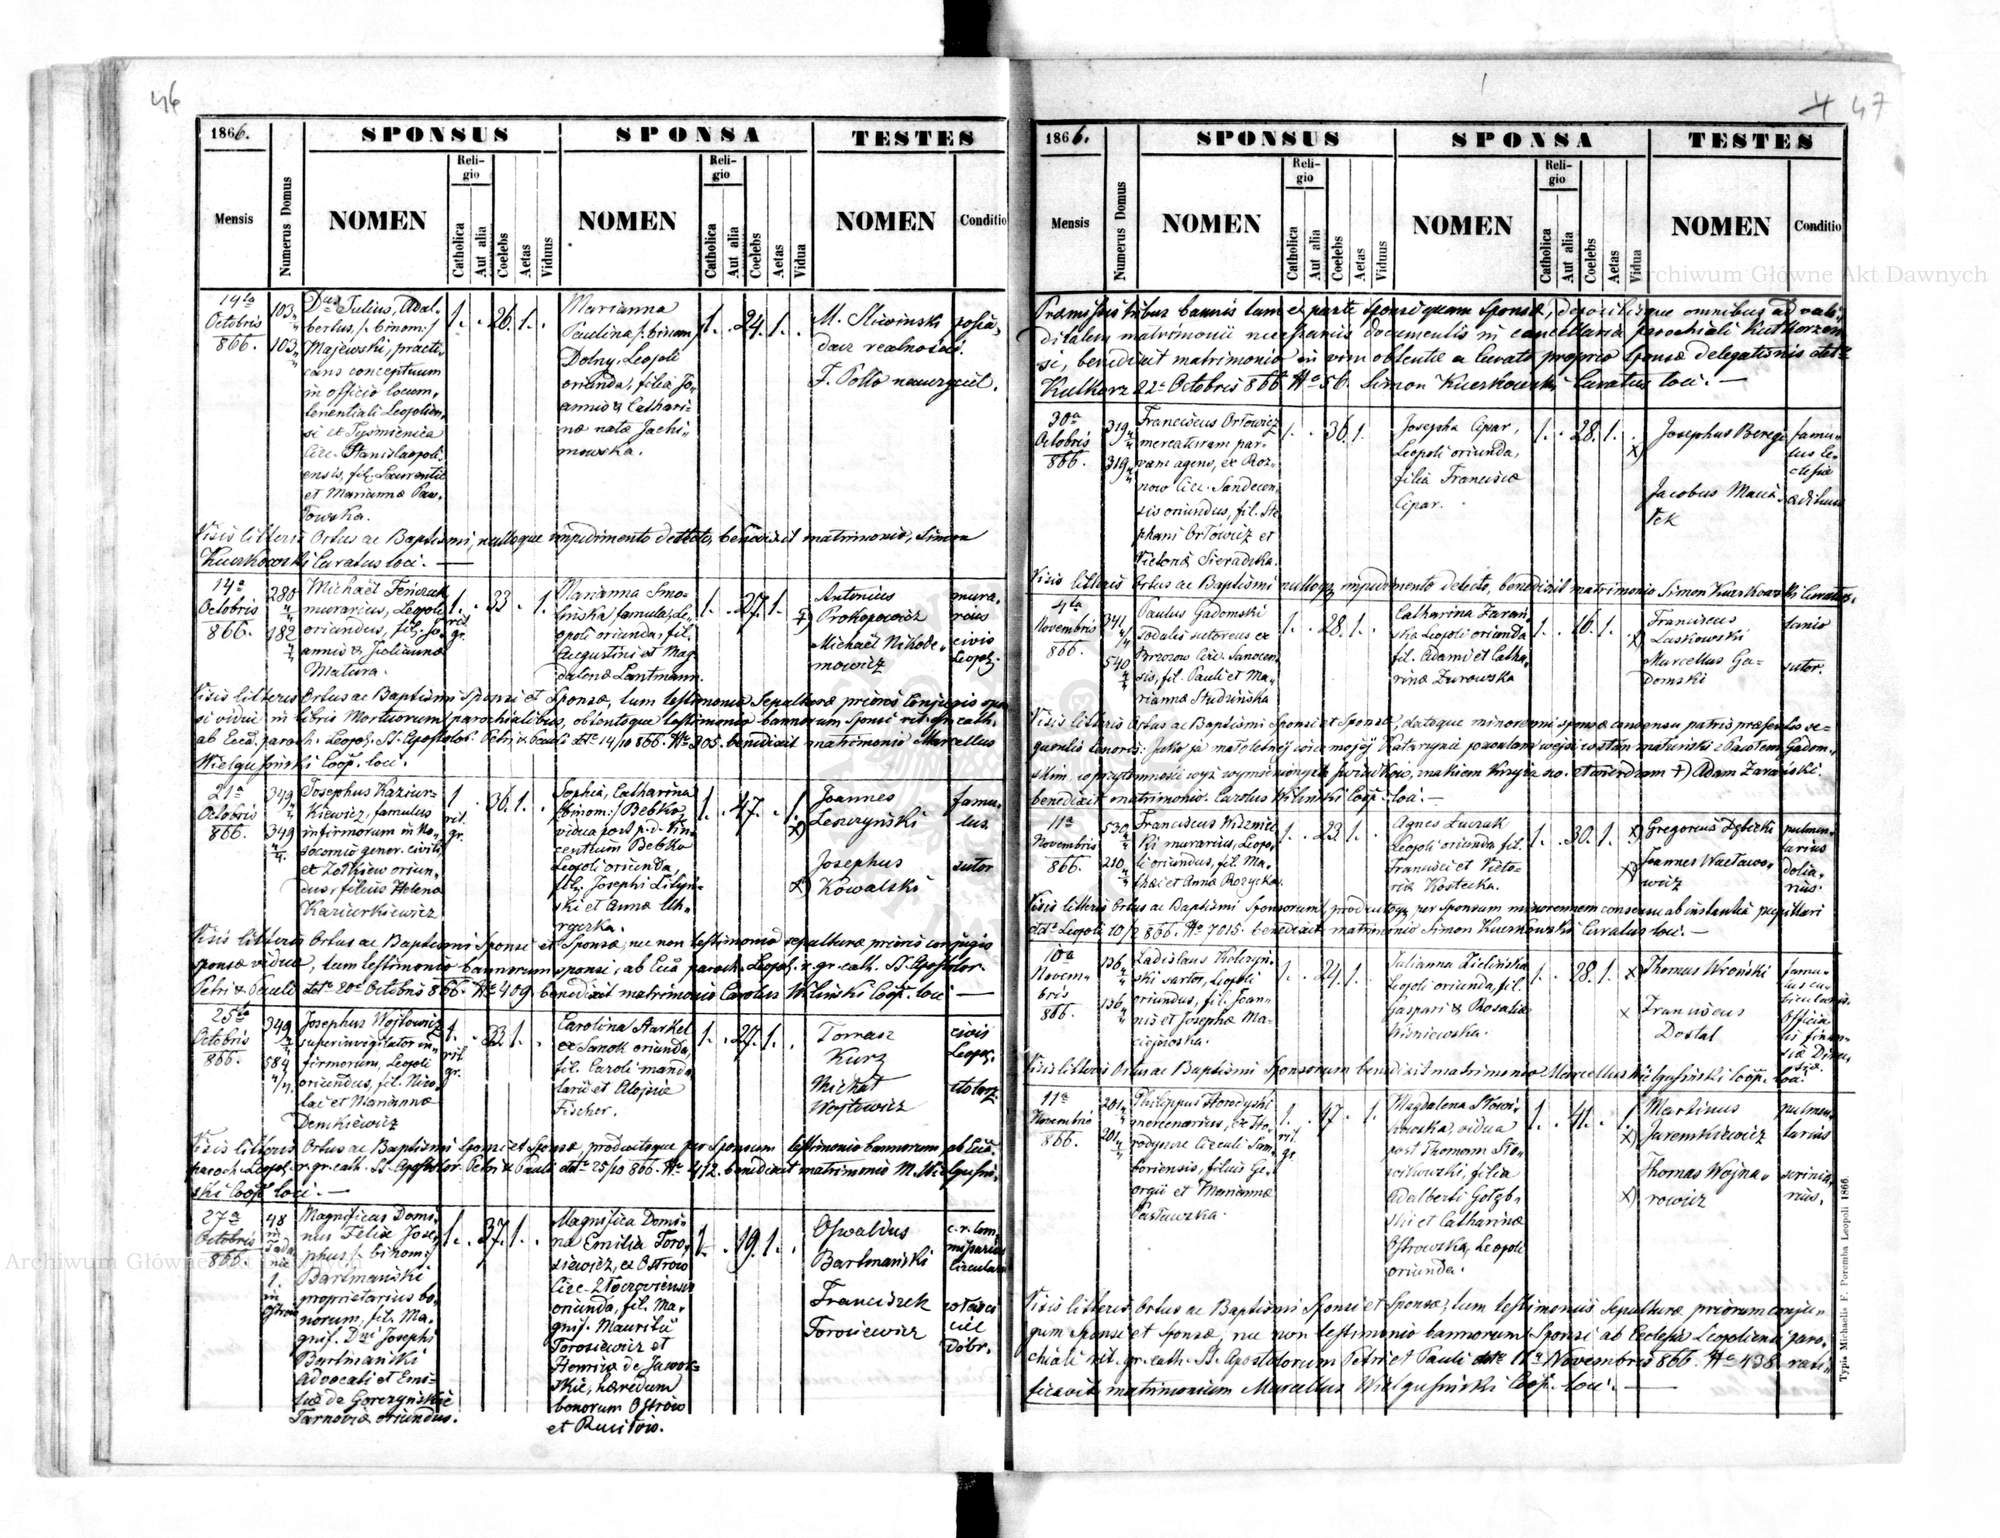 46
1866.
SPONSUS
SPONSA
TESTES
Mensis
Numerus Domus
NOMEN
Religio
Catholica
Aut alia
Coelebs
Aetas
Viduus
NOMEN
Religio
Catholica
Aut alia
Coelebs
Aetas
Vidua
NOMEN
Conditio
14ta
Octobris
866.
103
103
Dnus Julius, Adal-
bertus, /: binom:/
Majewski, practi-
cans conceptuum
in officio locum,
tenentiali Leopolien,
si et Tyśmienica
Circ. Stanislaopoli-
ensis, fil. Laurentii
et Marianna Paw-
łowska.
1. . 26. 1. .
Marianna
Paulina /: binom
Dolny, Leopoli
orianda, filia Jo,
annis & Cathari-
næ natæ Jachi-
mowska.
1. . 24. 1. .
M. Sliwinski
posia,
dacz realności.
F. Potto nauczyciel.
Visis litteris Ortus ac Baptismi, nulloque impedimento detecto, benedixit matrimonio, Simon
Kuczkowski Curatus loci. —
14a
Octobris
866.
280
182
Michaël Fenczuk
murarius, Leopoli
oriundus, fil. Jo,
annis & Julianna
Matura.
1. rit. gr. . 33 . 1.
Marianna Smo-
linska famula, Le-
opoli orianda, fil.
Augustini et Mag
dalenæ Lantmann.
1. . 27. 1. .
Antonius
Prokopowicz
mura-
rius
Michaël Nikode-
mowicz
civis
Leopol.
Visis litteris Ortus ac Baptismi Sponsi et Sponsæ, tum testimonio Sepulturæ prioris Conjugis spon
si vidui in libris Mortuorum parochialibus, obtentoque testimonio bannorum Sponsi rit. gr. cath.
ab Eccâ paroch. Leopol. SS. Apostolor. Petri & Pauli ddto 14/10 866. No 305. benedixit matrimonio Marcellus
Wielgusinski Coop. loci.
21a
Octobris
866.
349
349
Josephus Kaziur-
kiewicz, famulus
infirmorum in No-
socomio gener. civili,
ex Zołkiew oriun-
dus, filius Helena
Kaziurkiewicz
1 rit. gr. . 36. 1. .
Sophia, Catharina
/:binom:/ Bebko,
vidua post p. d. Vin-
centium Bebko
Leopoli orianda,
fil. Josephi Lityń-
ski et Annæ Uh-
ryczka.
1. . 47. . 1.
Joannes
Leszczyński
famu-
lus.
Josephus
Kowalski
sutor
Visis litteris Ortus ac Baptismi Sponsi et Sponsæ, nec non testimonio sepulturæ prioris conjugis
sponsæ viduæ, tum testimonio bannorum sponsi, ab Eccâ paroch. Leopol. r. gr. cath. SS. Apostolor.
Petri & Pauli ddto 20a Octobris 866. No 409. benedixit matrimonio Carolus Wiliński Coop. loci —
25ta
Octobris
866.
349
584
Josephus Wojtowicz
superinvigilator in-
firmorum, Leopoli
oriundus, fil. Nico-
lai et Marianna
Demkiewicz
1. rit. gr. . 33 1. .
Carolina Harkel
ex Sanok orianda,
fil. Caroli manda
tarii et Aloysia
Fischer.
1. . 27. 1. .
Tomasz
Kurz
civis
Leopol.
Michał
Wojtowicz
stolarz.
Visis litteris Ortus ac Baptismi Sponsi et Sponsæ, productoque per Sponsum testimonio bannorum ab Eccâ
paroch. Leopol. r. gr. cath. SS. Apostolor. Petri & Pauli ddto 25/10 866. No 412. benedixit matrimonio M. Wielgusin-
ski Coop. loci. —
27a
Octobris
866.
48
in
1.
in
Ostrow
Magnificus Domi-
nus Felix Jose-
phus /: binom:/
Bartmański
proprietarius bo-
norum, fil. Ma-
gnif. Dni Josephi
Bartmanski
Advocati et Emi-
liæ de Gorczynskie
Tarnoviæ oriundus.
1. . 37. 1. .
Magnifica Domi-
na Emilia Toro-
siewicz, ex Ostrow
Circ. Złoczoviensis
orianda, fil. Ma-
gnif. Mauritii
Torosiewicz et
Henrica de Jawor-
skie, hæredum
bonorum Ostrow
et Rusitow.
1. . 19. 1. .
Oswaldus
Bartmański
c. r. Com
misarius
Circular.
Franciszek
Torosiewicz
właści
ciel
dóbr.
47
1866.
SPONSUS
SPONSA
TESTES
Mensis
Numerus Domus
NOMEN
Religio
Catholica
Aut alia
Coelebs
Aetas
Viduus
NOMEN
Religio
Catholica
Aut alia
Coelebs
Aetas
Vidua
NOMEN
Conditio
Præmissis tribus bannis tum ex parte Sponsi quam Sponsæ, depositisque omnibus ad vali-
ditatem matrimonii necessariis documentis in cancellaria parochiali Kutkorzen
si, benedixit matrimonio in vim obtentæ a Curato proprio Sponsæ delegationis ddto
Kutkorz 22a Octobris 866 No 56. Simon Kuczkowski Curatus loci. —
30a
Octobris
866.
319
319
Franciscus Orłowicz
mercaturam par-
vam agens, ex Roz-
now Circ. Sandecen-
sis oriundus, fil. Ste-
phani Orłowicz et
Victoria Sieradzka.
1. . 36. 1.
Josepha Cipar,
Leopoli orianda,
filia Francisca
Cipar.
1. . 28. 1. .
Josephus Bereg
famu-
lus Ec-
clesiæ
Jacobus Maciá-
łek
ædituus
Visis litteris Ortus ac Baptismi nulloq impedimento detecto, benedixit matrimonio Simon Kuczkowski Curatus.
4ta
Novembris
866
341
540
Paulus Gadomski
sodalis sutoreus ex
Brzozow Circ. Sanocen-
sis, fil. Pauli et Ma-
rianna Studzińska
1. . 28. 1. .
Catharina Zarań-
ska Leopoli orianda
fil. Adami et Catha-
rinæ Zurowska
1. . 16. 1. .
Franciscus
Laskowski
lanio
Marcellus Ga-
domski
sutor.
Visis litteris Ortus ac Baptismi Sponsi et Sponsæ, datoque minorenni sponsæ consensu patris præsentis se-
quentis tenoris: Jako ja małoletniej córce mojej Katarzynie pozwalam wejść w stan małżeński z Pawłem Gadom-
skim w przytomności wyż wymienionych świadków, znakiem krzyża św. stwierdzam +) Adam Zarański.
benedixit matrimonio. Carolus Wiliński Coop. loci. —
11a
Novembris
866.
530
210
Franciscus Widznic
ki murarius, Leopo-
li oriundus, fil. Ma-
thæi et Anna Rozycka
1. . 23. 1. .
Agnes Łuczuk
Leopoli orianda fil.
Francisci et Victo-
ria Kostecka.
1. . 30. 1. .
Gregorius Dębicki
pulmen-
tarius
Joannes Wacławo-
wicz
dolia-
rius.
Visis litteris Ortus ac Baptismi Sponsorum, productoq per Sponsum minorennem consensu ab instantia pupillari
ddto Leopoli 10/2 866. No 7015. benedixit matrimonio Simon Kuczkowski Curatus loci. —
10a
Novem-
bris
866.
136
136
Ladislaus Kolczyn-
ski sartor, Leopoli
oriundus, fil. Joan-
nis et Josepha Ma-
ciejowska.
1. . 24. 1. .
Julianna Zielińska
Leopoli orianda, fil.
Gaspari & Rosalia
Wisniewska.
1. . 28. 1.
Thomas Wroński
famu-
lus cu-
bicularis.
Franciscus
Dostal
Officia
lis finan-
Visis litteris Ortus ac Baptismi Sponsorum benedixit matrimonio Marcellus Wielgusiński Coop. loci.
11a
Novembris
866.
201
201
Philippus Horodyski
mercenarius, ex Ho-
rodyszcze Circuli Sam-
boriensis, filius Ge-
orgii et Marianna
Pastawska.
1. rit. gr. . 47 . 1.
Magdalena Słowi-
kowska, vidua
post Thomam Sło-
wikowski, filia
Adalberti Gołęb-
ski et Catharinæ
Ostrowska, Leopoli
orianda.
1. . 41. . 1.
Martinus
Juremkiewicz
pulmen-
tarius
Thomas Wojna-
rowicz
scrinia-
rius.
Visis litteris Ortus ac Baptismi Sponsi et Sponsæ, tum testimoniis Sepulturæ priorum conju-
gum Sponsi et Sponsæ, nec non testimonio bannorum Sponsi ab Ecclesia Leopoliensi paro-
chiali rit. gr. cath. SS. Apostolorum Petri et Pauli ddto 11a Novembris 866. No 438 rati-
ficavit matrimonium Marcellus Wielgusiński Coop. loci. —
Typis Michaelis F. Poremba Leopoli 1866.
Archiwum Główne Akt Dawnych
Archiwum Główne Akt Dawnych